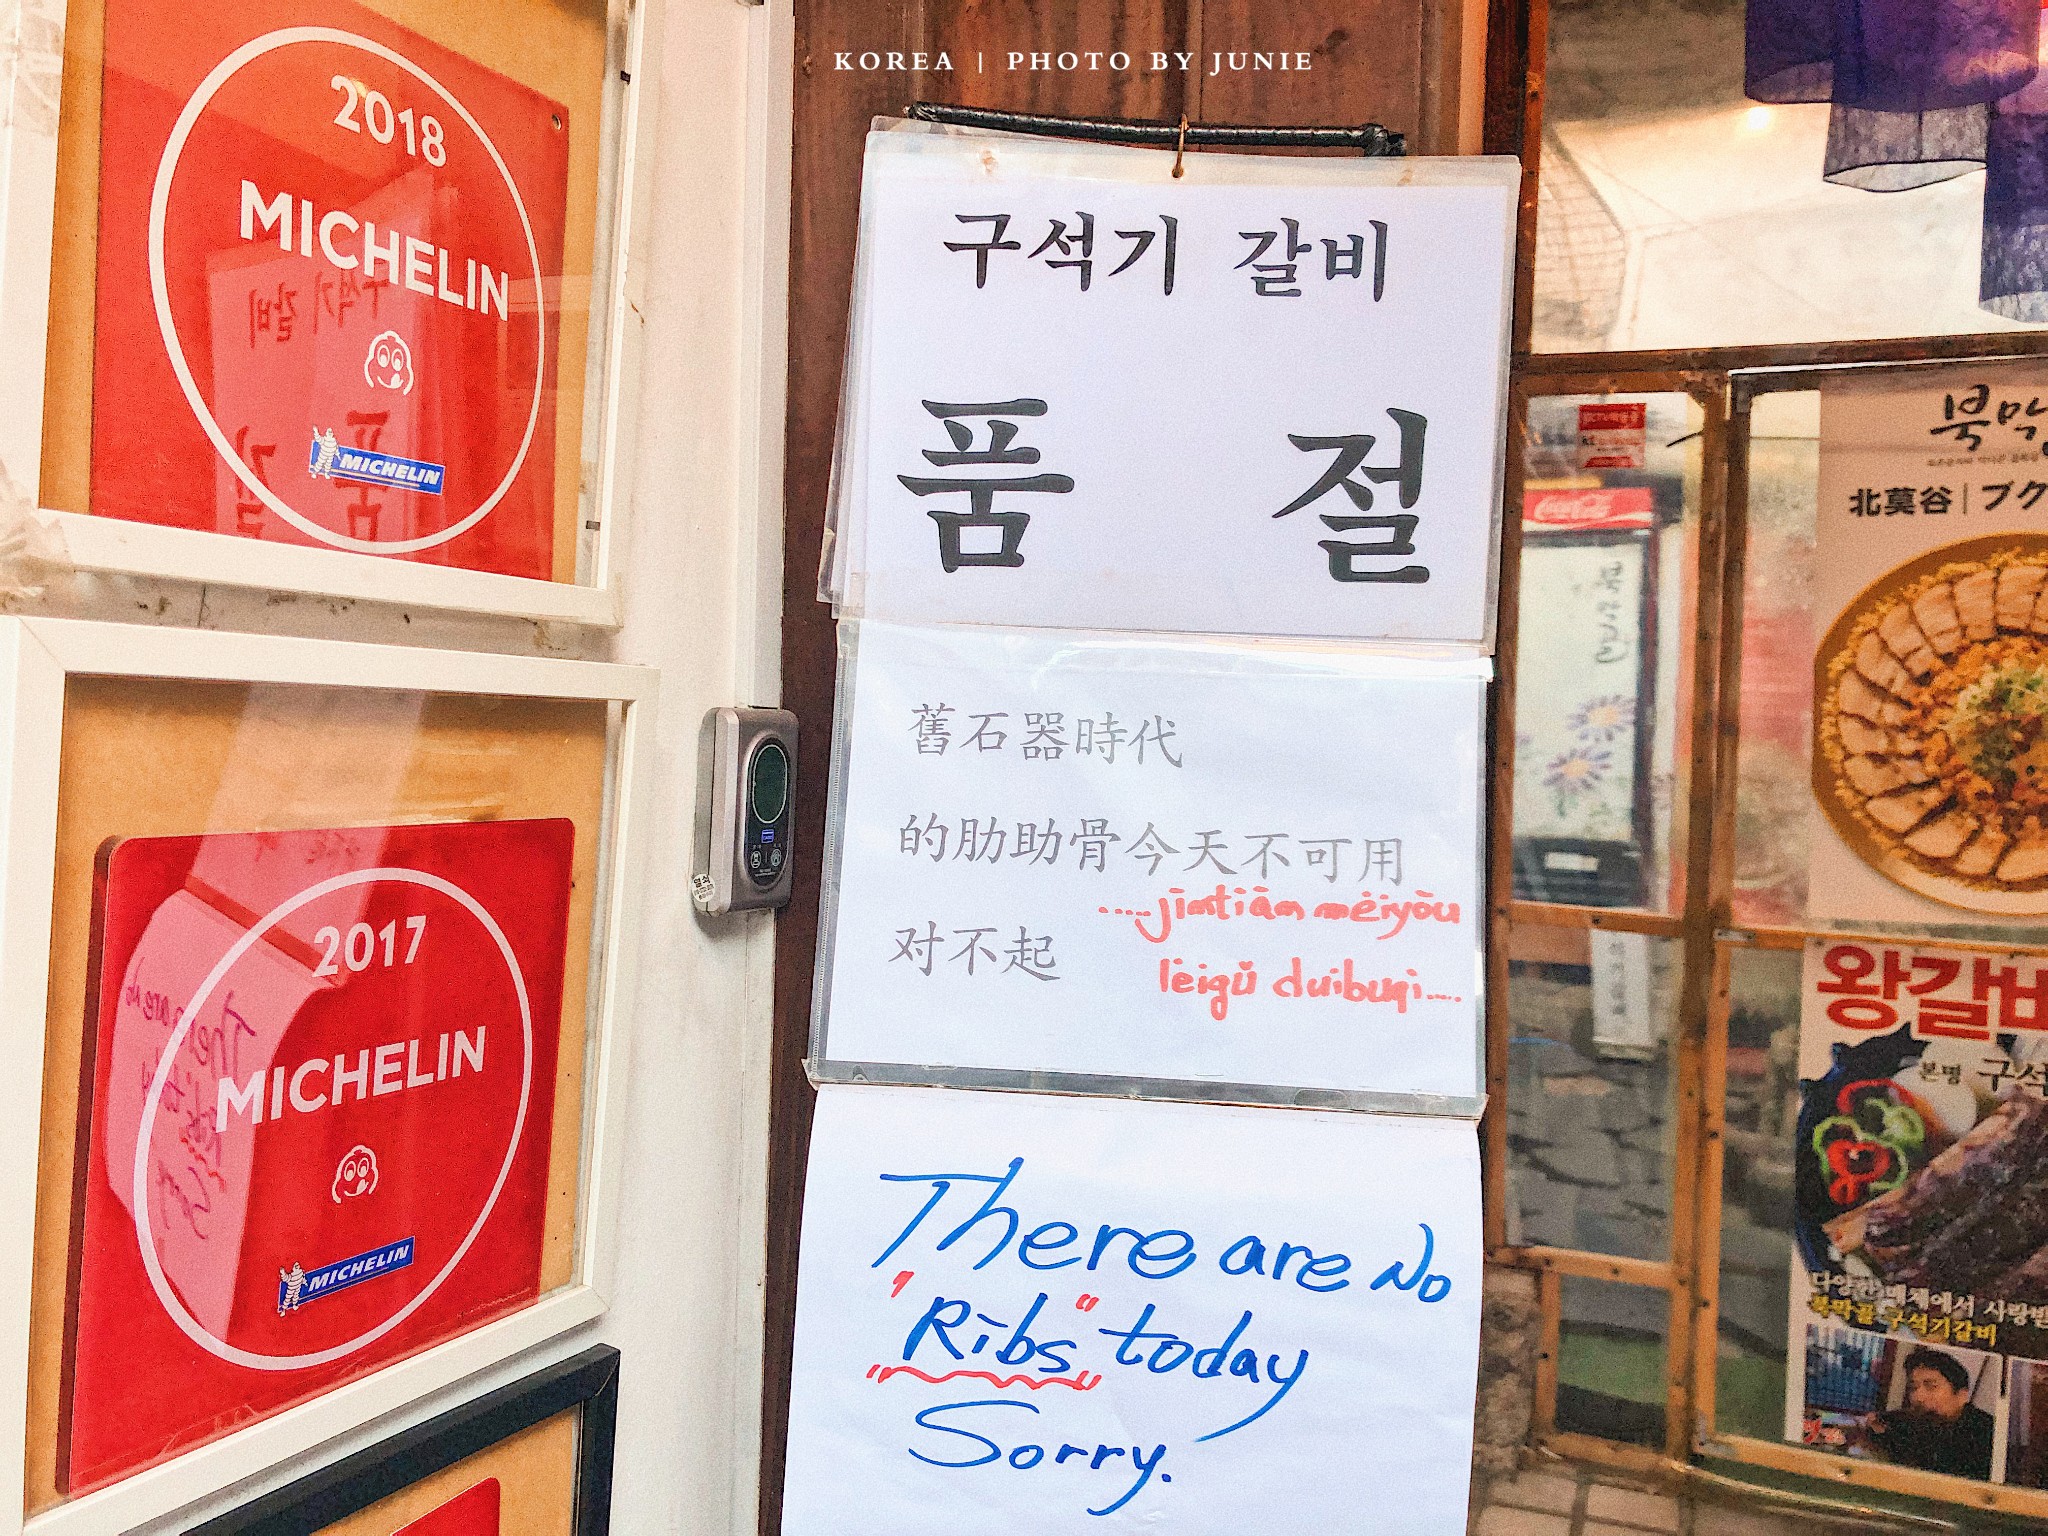 KOREA | PHOTO BY JUNIE
2018
MICHELIN
MICHELIN
2017
MICHELIN
MICHELIN
구석기 갈비
품 절
舊石器時代
的肋助骨今天不可用
对不起
.....jīntiān méiyǒu
lèigǔ duibuqi....
There are No
"Ribs" today
Sorry.
Coca-Cola
북막
北莫谷 | ブク
왕갈비
본명 구석
다양한 매체에서 사랑받
북막골 구석기갈비